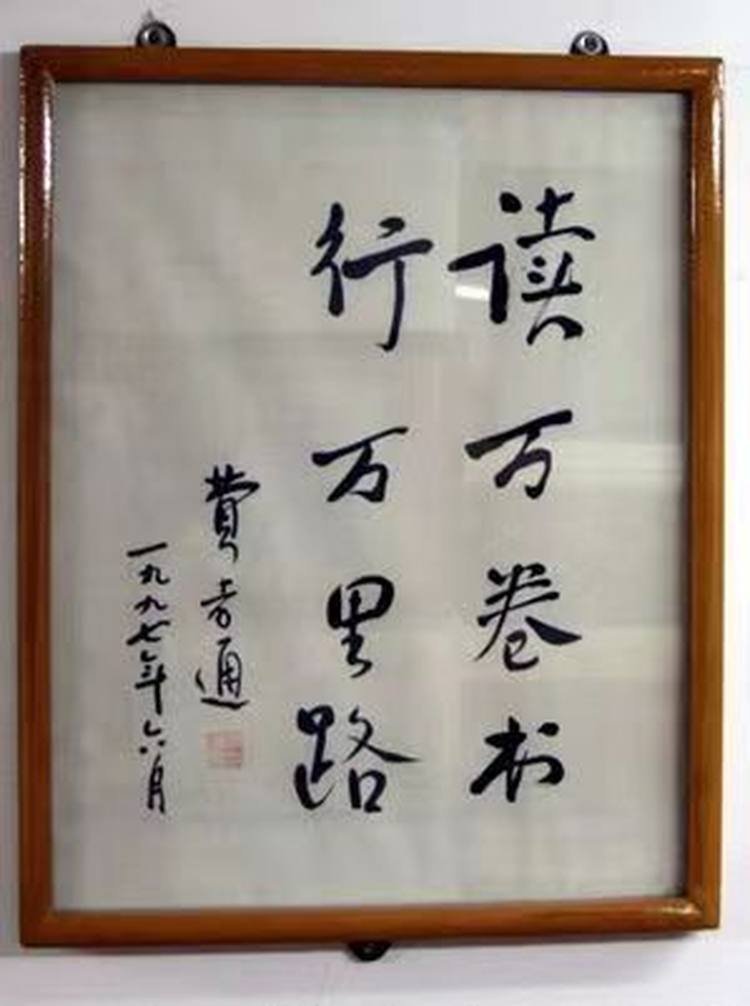 读万卷书
行万里路
費孝通
一九九七年六月